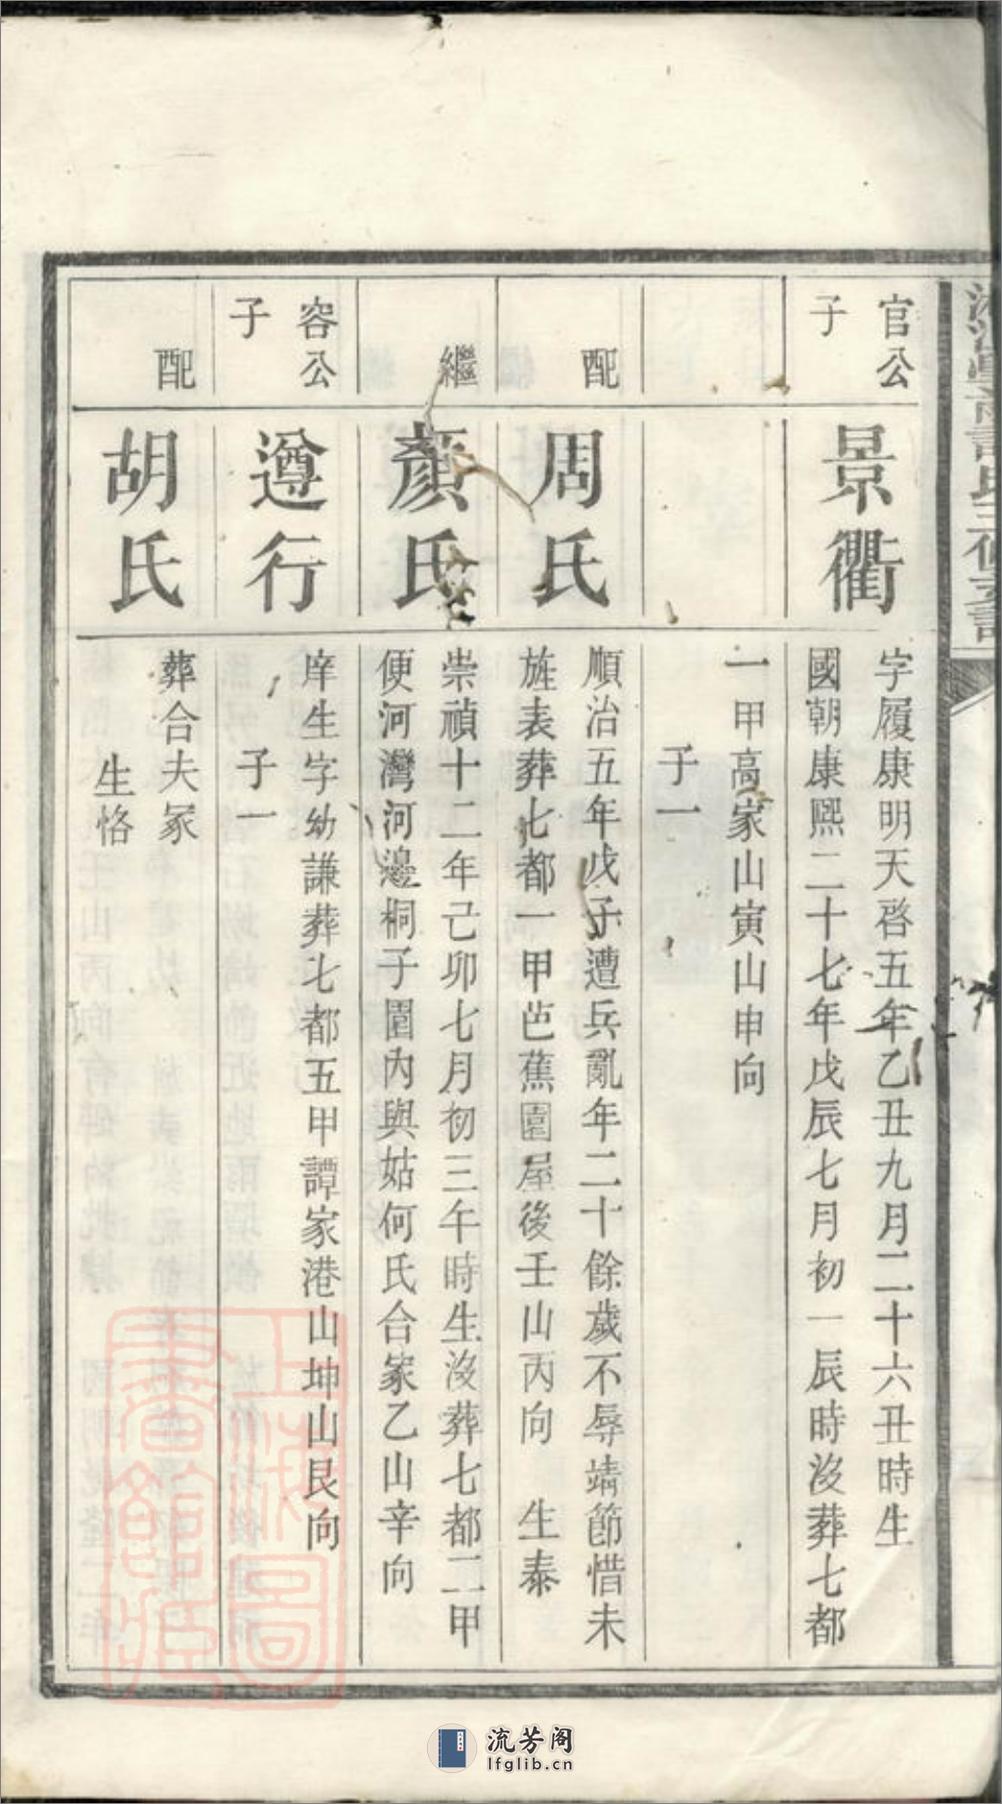 官公
子
景衢
字履康明天啓五年乙丑九月二十六丑時生
國朝康熙二十七年戊辰七月初一辰時沒葬七都
一甲高家山寅山申向
子一
配
周氏
順治五年戊子遭兵亂年二十餘歲不辱靖節惜未
旌表葬七都一甲芭蕉園屋後壬山丙向 生泰
繼
顏氏
崇禎十二年己卯七月初三午時生沒葬七都二甲
便河灣河邊桐子園內與姑何氏合冢乙山辛向
容公
子
遵行
庠生字幼謙葬七都五甲譚家港山坤山艮向
子一
配
胡氏
葬合夫冢
生恪
上海圖書館藏
流芳阁
lfglib.cn